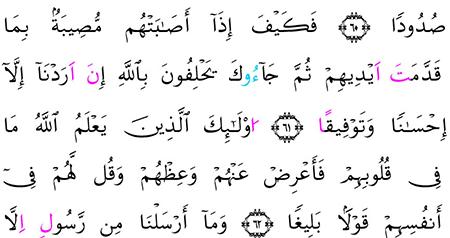 صُدُودًا ٦٠ فَكَيْفَ إِذَآ أَصَٰبَتْهُم مُّصِيبَةُۢ بِمَا
قَدَّمَتَ اَيْدِيهِمْ ثُمَّ جَآءُوكَ يَحْلِفُونَ بِاللَّهِ إِنَ اَرَدْنَآ إِلَّآ
إِحْسَٰنًا وَتَوْفِيقًا ٦١ اُوْلَٰٓئِكَ الَّذِينَ يَعْلَمُ اللَّهُ مَا
فِى قُلُوبِهِمْ فَأَعْرِضْ عَنْهُمْ وَعِظْهُمْ وَقُل لَّهُمْ فِىٓ
أَنفُسِهِمْ قَوْلَۢا بَلِيغًا ٦٢ وَمَآ أَرْسَلْنَا مِن رَّسُولٍ اِلَّا